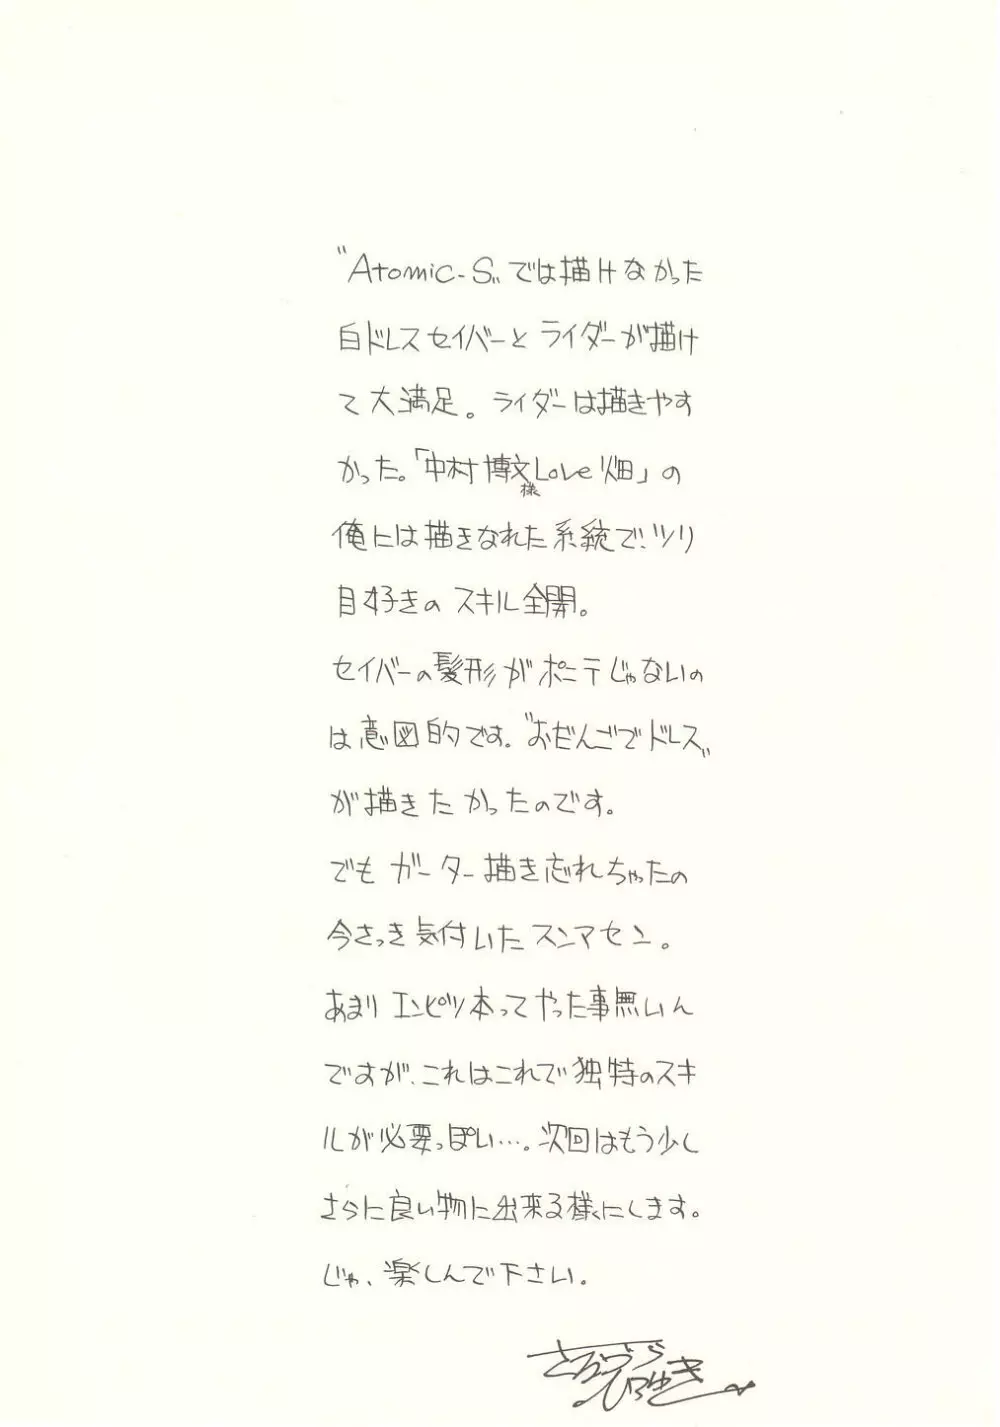 〝Atomic-S〟では描けなかった
白ドレスセイバーとライダーが描け
て大満足。ライダーは描きやす
かった。「中村博文Love畑」の
様
俺には描きなれた系統で!ツリ
目好きのスキル全開。
セイバーの髪形がポニテじゃないの
は意図的です。〝おだんごでドレス〟
が描きたかったのです。
でもガーター描き忘れちゃったの
今さっき気付いたスンマセン。
あまりエンピツ本ってやった事無いん
ですが、これはこれで独特のスキ
ルが必要っぽい…。次回はもう少し
さらに良い物に出来る様にします。
じゃ、楽しんで下さい。